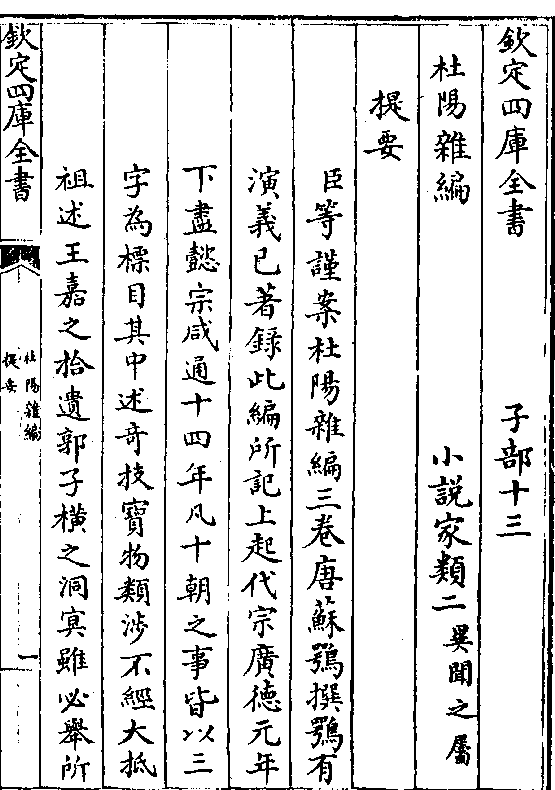 欽定四庫全書　子部十三
杜陽雜編　小説家類二異聞之屬
提要
臣等謹案杜陽雜編三卷唐蘇鶚撰鶚有
演義已著録此編所記上起代宗廣德元年
下盡懿宗咸通十四年凡十朝之事皆以三
字為標目其中述奇技寳物類涉不經大抵
祖述王嘉之拾遺郭子橫之洞㝠雖必舉所
欽定四庫全書
杜陽雜編
提要
一